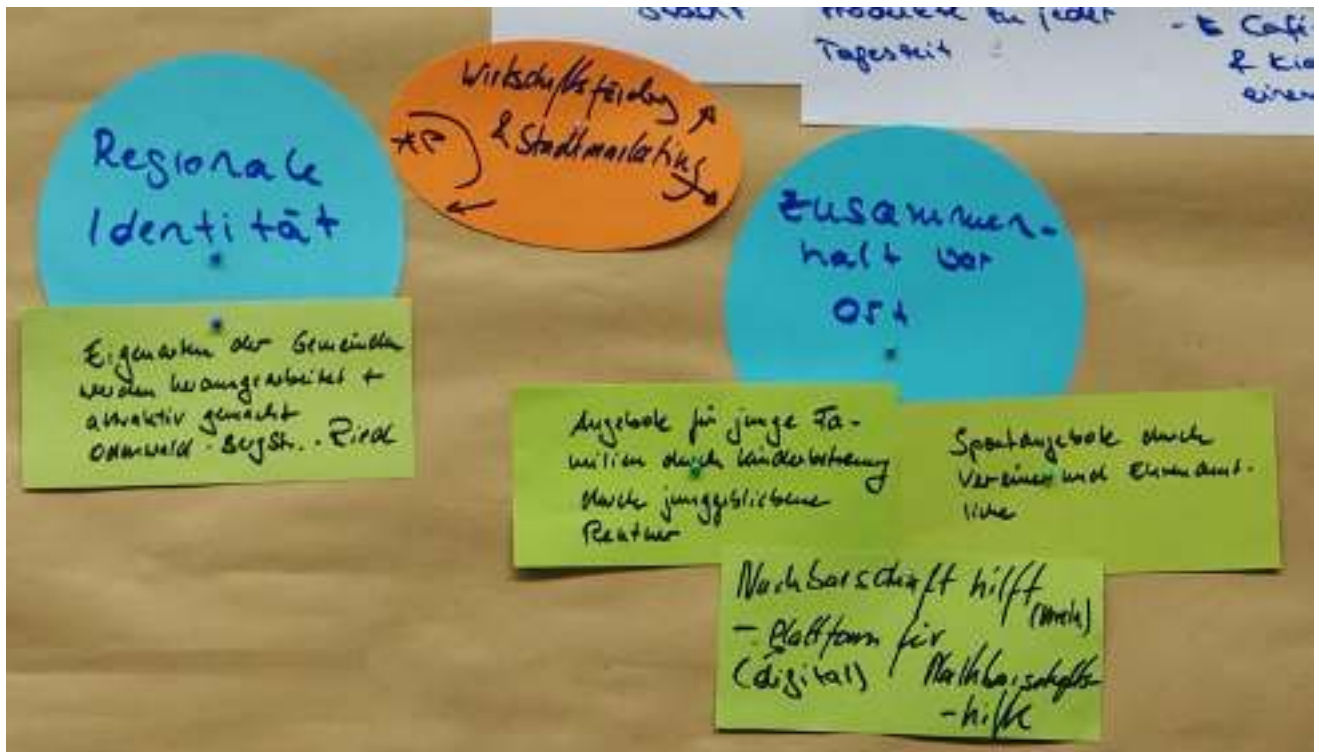 Produkte zu jeder
Tageszeit
- Café
&
einen
Wirtschaftsförderg
& Stadtmarketing
Regionale
Identität
Eigenarten der Gemeinden
werden herausgearbeitet +
attraktiv gemacht
Odenwald - BergStr. - Ried
Zusammen-
halt vor
Ort
Angebote für junge Fa-
milien durch Kinderbetreuung
durch junggebliebene
Rentner
Sportangebote durch
Vereine und Ehrenamt-
liche
Nachbarschaft hilft
(Verein)
- Plattform für
(digital) Nachbarschafts-
-hilfe